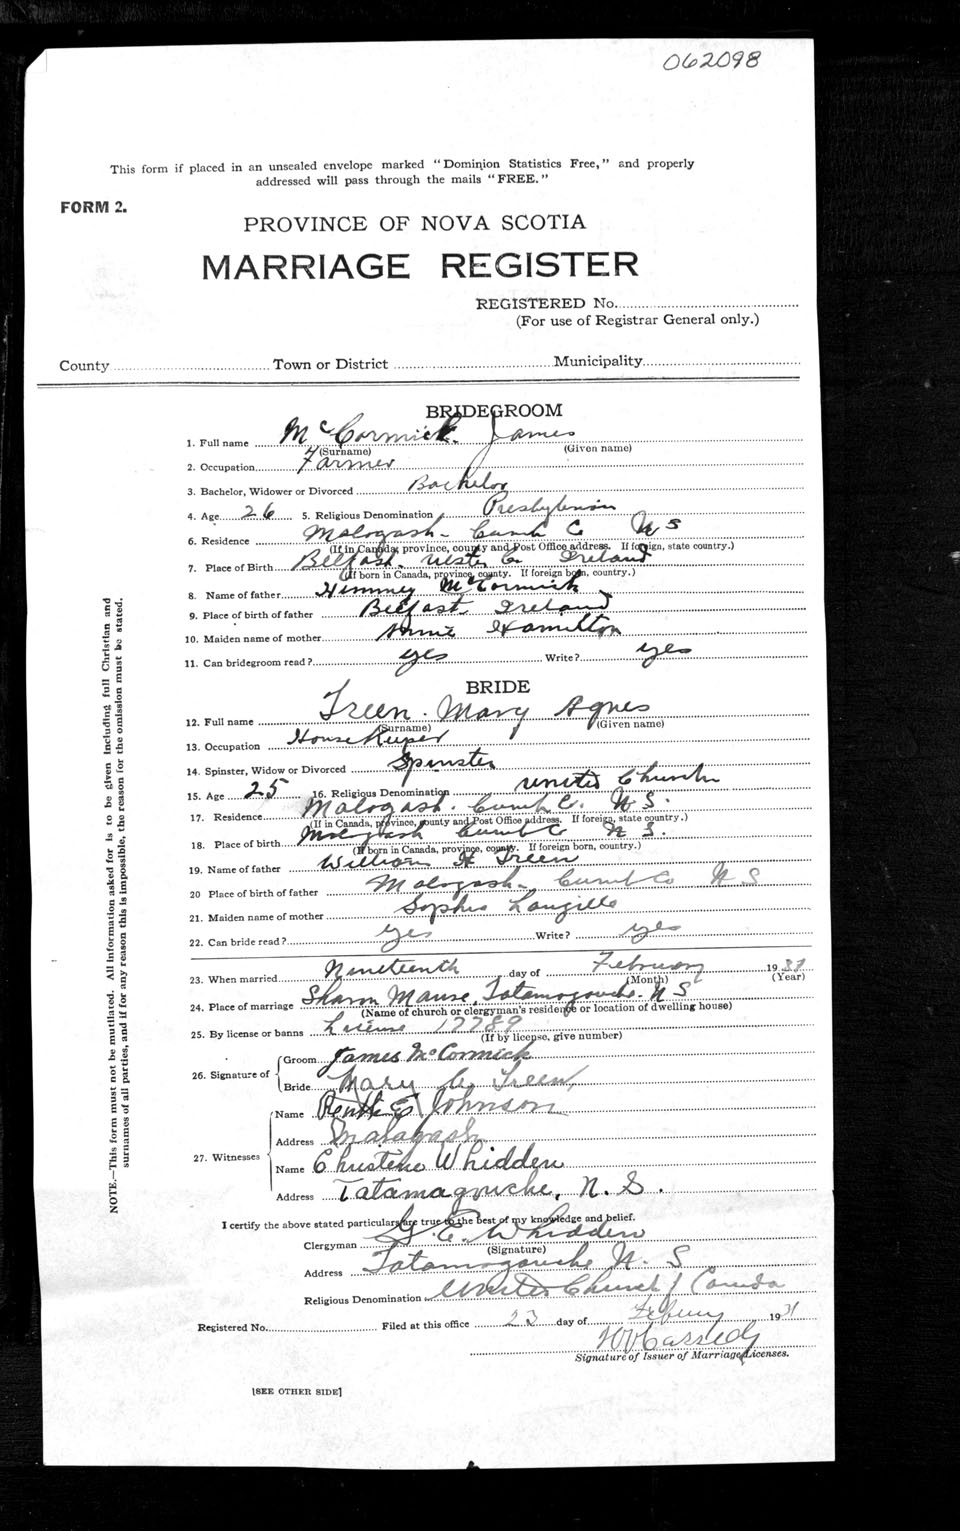 062098
This form if placed in an unsealed envelope marked "Dominion Statistics Free," and properly
addressed will pass through the mails "FREE."
FORM 2.
PROVINCE OF NOVA SCOTIA
MARRIAGE REGISTER
REGISTERED No.
(For use of Registrar General only.)
County Town or District Municipality
BRIDEGROOM
1. Full name McCormick James
(Surname) (Given name)
2. Occupation Farmer
3. Bachelor, Widower or Divorced Bachelor
4. Age 26 5. Religious Denomination Presbyterian
6. Residence Malogash - Cumb Co N S
(If in Canada, province, county and Post Office address. If foreign, state country.)
7. Place of Birth Belfast Ireland
(If born in Canada, province, county. If foreign born, country.)
8. Name of father McCormick
9. Place of birth of father Belfast Ireland
10. Maiden name of mother Annie Hamilton
11. Can bridegroom read? yes Write? yes
BRIDE
12. Full name Treen. Mary Agnes
(Surname) (Given name)
13. Occupation House Keeper
14. Spinster, Widow or Divorced Spinster
15. Age 25 16. Religious Denomination United Church
17. Residence Malogash. Cumb Co. N S.
(If in Canada, province, county and Post Office address. If foreign, state country.)
18. Place of birth Malogash Cumb Co N S.
(If born in Canada, province, county. If foreign born, country.)
19. Name of father William H Treen
20 Place of birth of father Malogash - Cumb Co N S
21. Maiden name of mother Sophia Langille
22. Can bride read? yes Write? yes
23. When married Nineteenth day of February 1931
(Month) (Year)
24. Place of marriage Sharon Manse, Tatamagouche. N S
(Name of church or clergyman's residence or location of dwelling house)
25. By license or banns License 17789
(If by license, give number)
26. Signature of Groom James McCormick
Bride Mary A. Treen
27. Witnesses Name E Johnson
Address Malagash
Name Christene Whidden
Address Tatamagouche, N. S.
I certify the above stated particulars are true to the best of my knowledge and belief.
Clergyman G. E. Whidden
(Signature)
Address Tatamagouche N. S
Religious Denomination United Church of Canada
Registered No. Filed at this office 23 day of February 1931
Cassedy
Signature of Issuer of Marriage Licenses.
[SEE OTHER SIDE]
NOTE.—This form must not be mutilated. All information asked for is to be given including full Christian and
surnames of all parties, and if for any reason this is impossible, the reason for the omission must be stated.